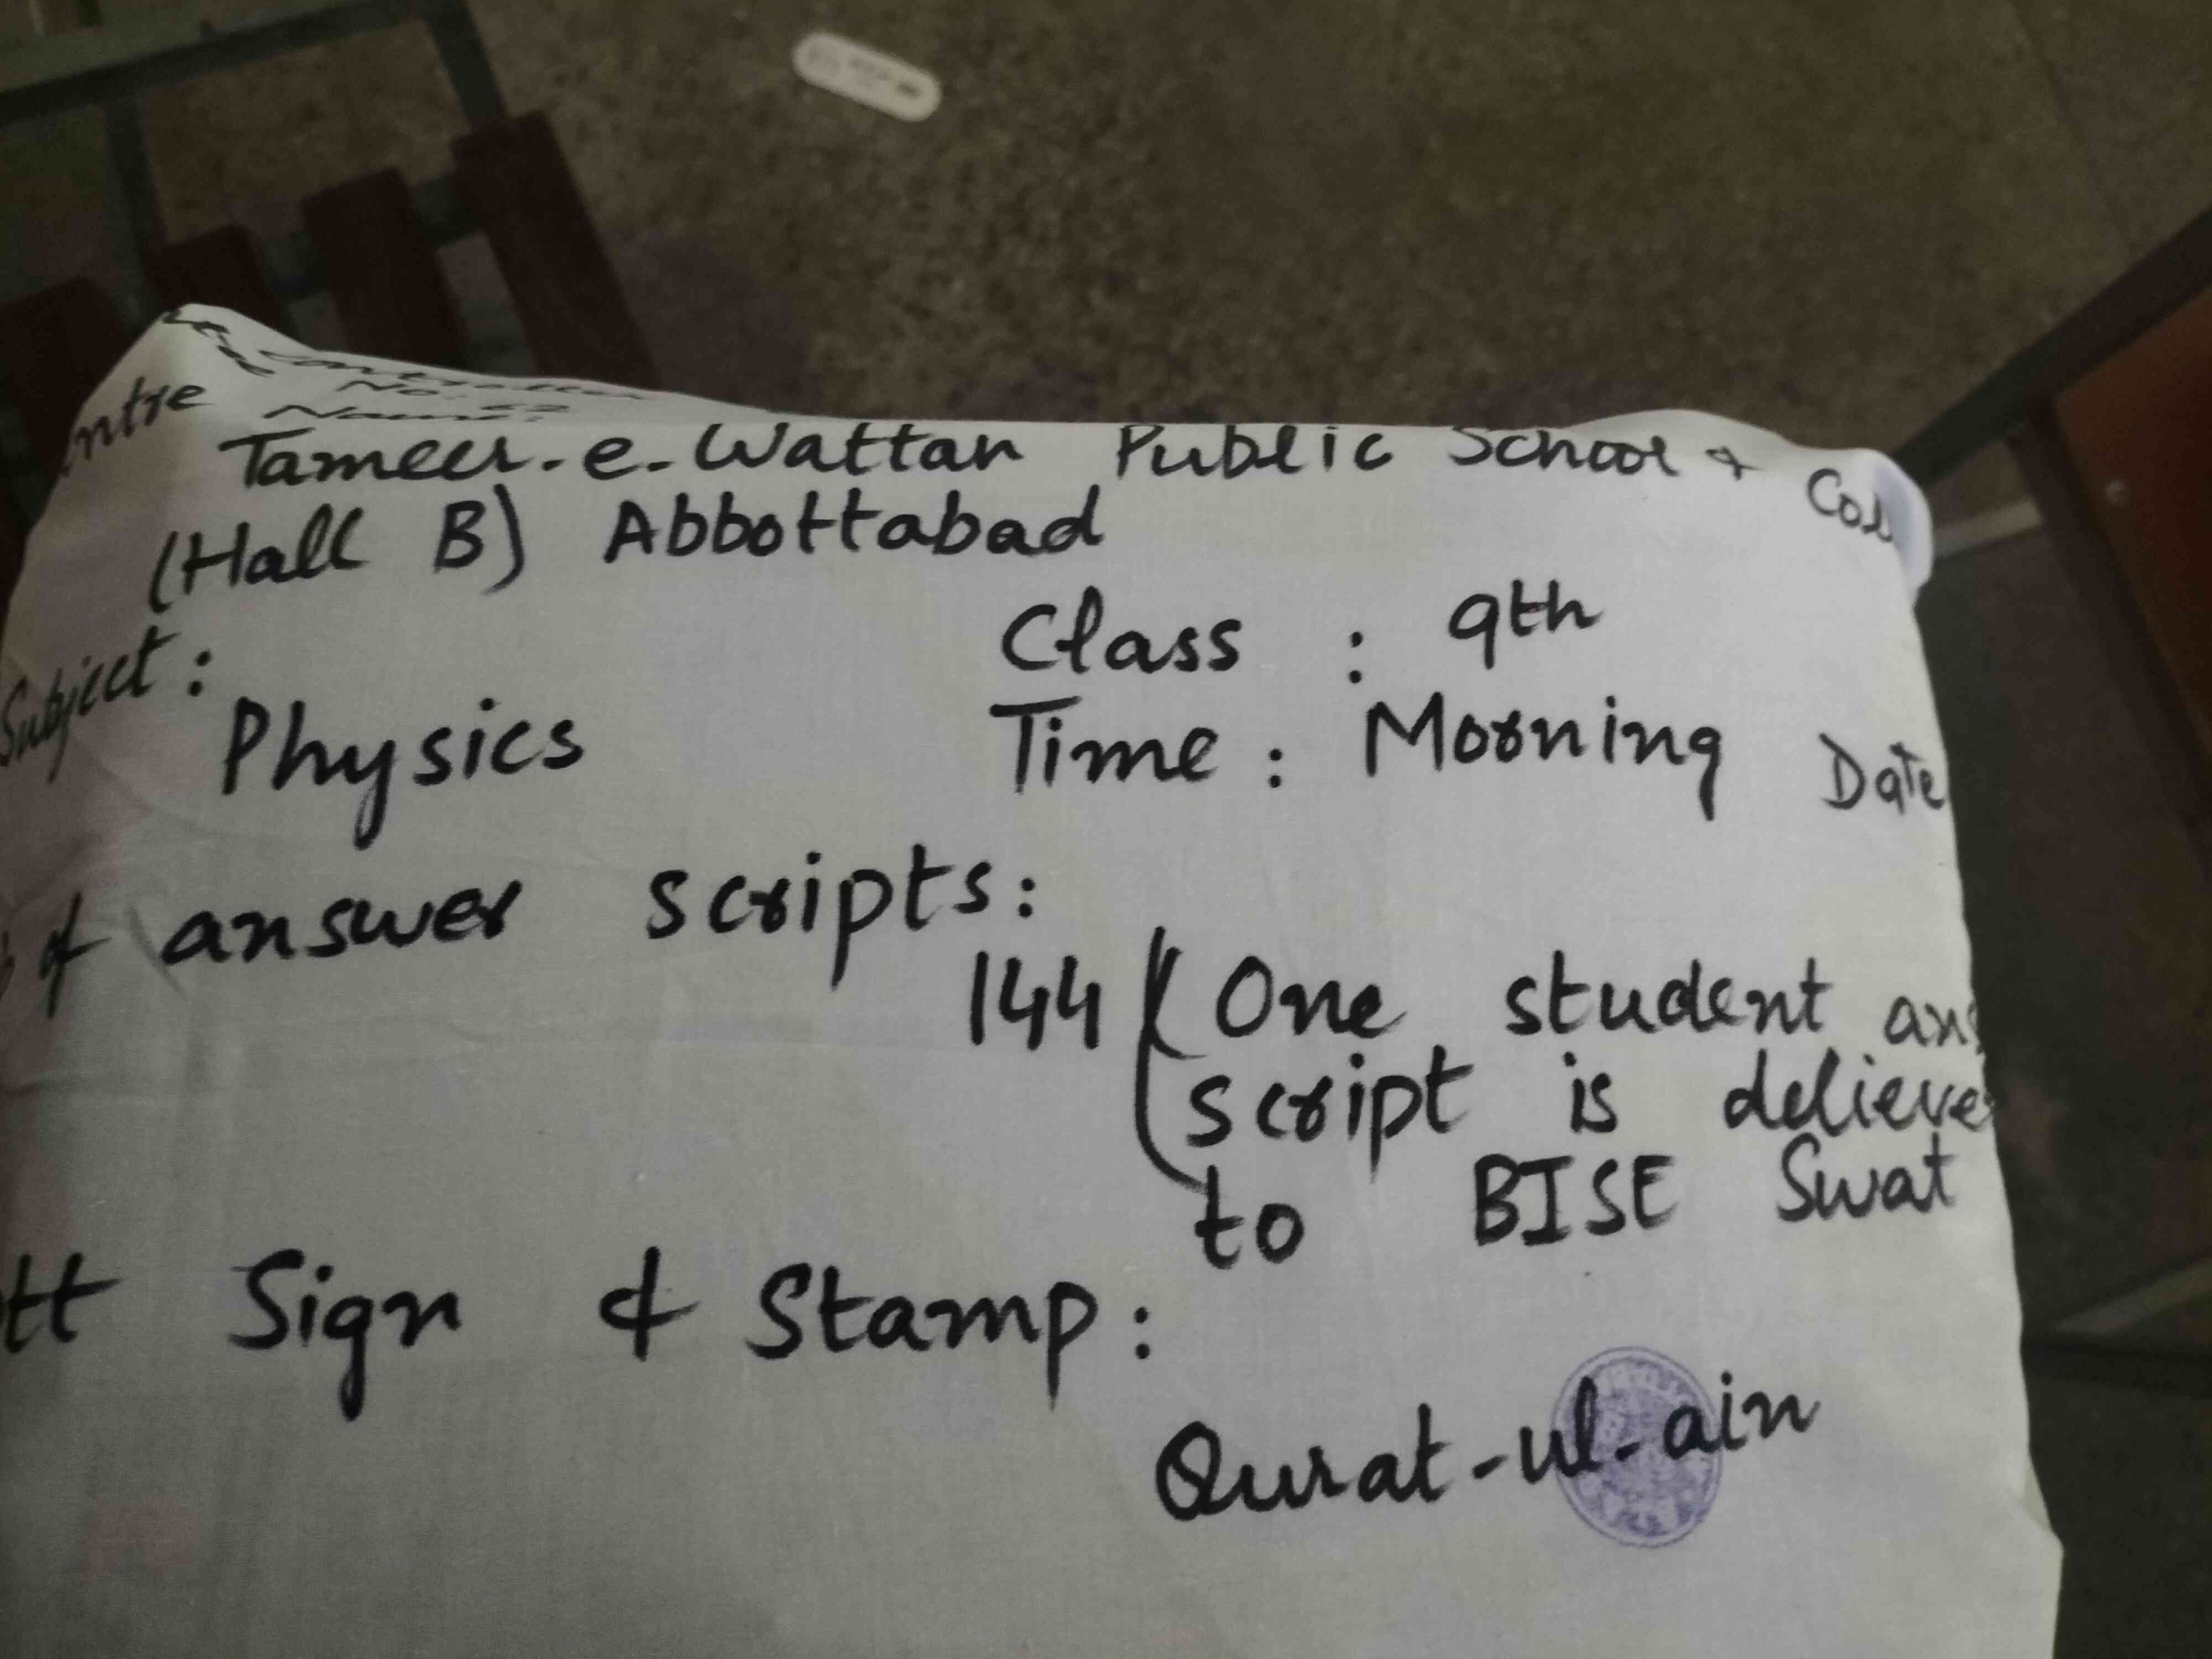 No.
Name:
Tameer-e-Wattan Public School &
(Hall B) Abbottabad
Class : 9th
Subject :
Physics
Time : Morning Date
of answer scripts:
144 (One student
script is
to BISE Swat
Sign & Stamp:
Qurat-ul-ain